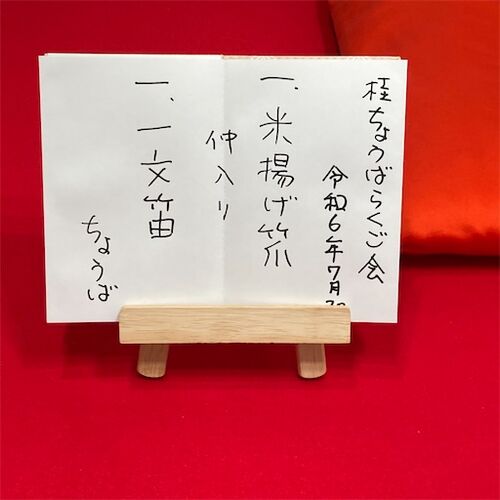 桂ちょうばらくご会
令和6年7月
一、米揚げ笊
仲入り
一、一文笛
ちょうば